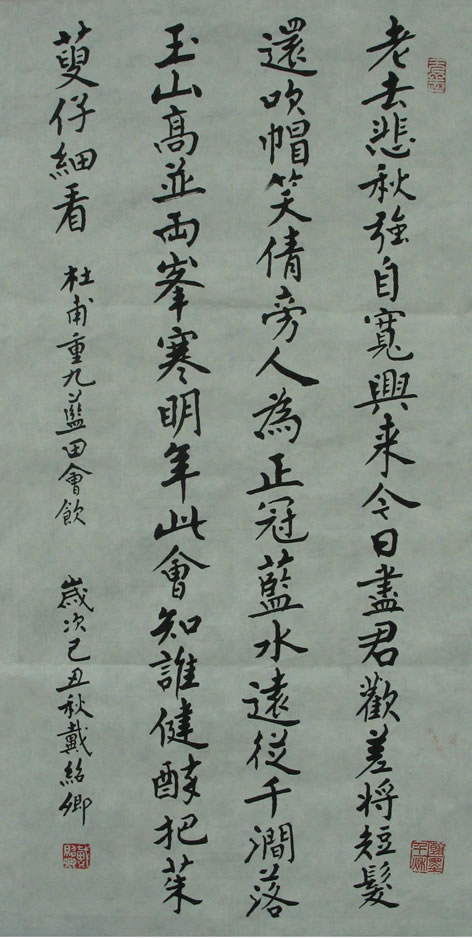 老去悲秋強自寬興来今日盡君歡羞将短髮
還吹帽笑倩旁人為正冠藍水遠從千澗落
玉山高並兩峯寒明年此會知誰健醉把茱
萸仔細看 杜甫重九藍田會飲 歲次己丑秋戴紹卿